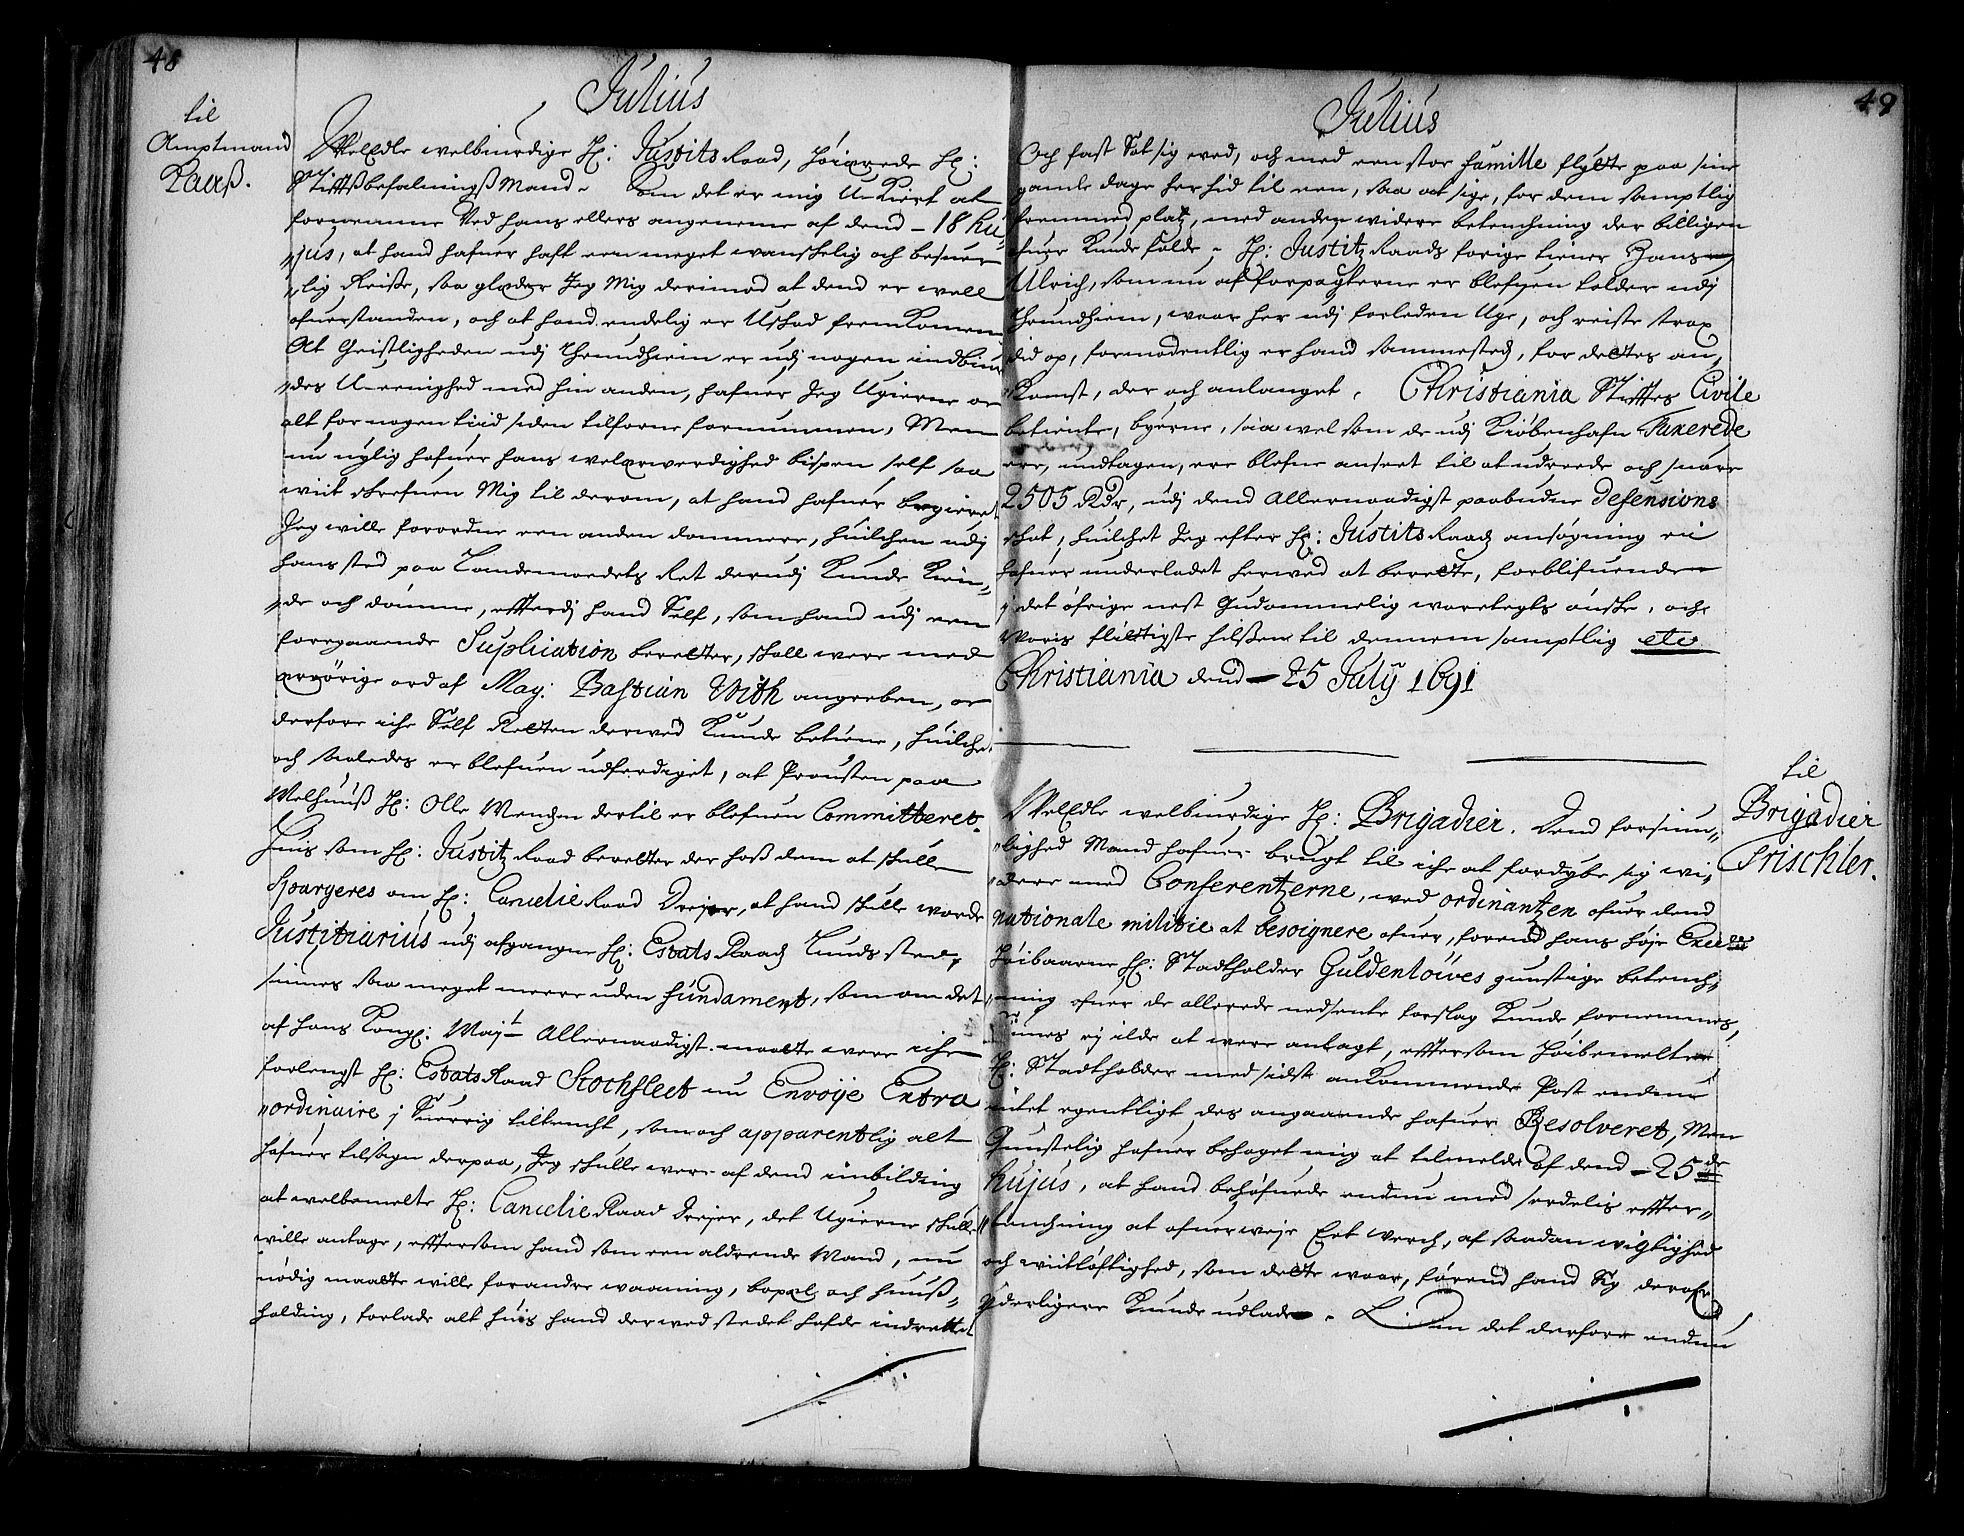 48
Julius
til
Amptmand
Kaaß.
WelEdle welbiurdige H: Justits Raad, höivrede H:
StifftsbefalningsMand. Som det er mig U-kiert at
fornemme Ved hans ellers angeneme af dend - 18 hu-
"jus, at hand hafuer haft een meget wanskelig och besuer-
"lig Reise, saa glæder Jeg Mig derimod at dend er well
ofuerstanden, och at hand endelig er Uskad fremkommen
At Geistligheden udj Thrundhiem er udj nogen indbiur-
"des U-eenighed med hin anden, hafuer Jeg Ugierne or
alt for nogen tiid siden tilforne fornummen, Men
nu nylig hafuer hans welærwerdighed bispen self saa
wiit skrefuen Mig til derom, at hand hafuer begieret
Jeg wille forordne een anden dommere, huilchen udj
hans sted paa Landemoedets Ret derudj kunde kien-
"de och dömme, efftterdj hand Self, som hand udj een
foregaaende Suplication beretter, skall were med
ærrörige ord af Mag: Bastian With angreben, or
derfore iche Self Retten derwed kunde betiene, huilchet
och saaledes er blefuen udferdiget, at Prousten paa
Melhuuß H: Olle Mencken dertil er blefuen Committeret.
Huis som H: Justitz Raad beretter der hoß dem at skulle
Spargeres om H: Cancelie Raad Dreyer, at hand skulle worde
Justitiarius udj afgangne H: Estats Raadz Lunds sted,
siunes saa meget meere uden fundament, som om det
af hans Kongl: Mayt Allernaadigst maatte were iche
forlengst H: EstatsRaad Stochfleet nu Envoye Extra
"ordinaire j Suerrig tiltencht, som och apparentlig alt
hafuer tilsagn derpaa, Jeg skulle were af dend inbilding
at welbemelte H: CancelieRaad Dreyer, det Ugierne skulle
wille antage, efftersom hand som een aldrende Mand, nu
nödig maatte wille forandre waaning, bopæl och huuß-
holding, forlade alt huis hand der wed stedet hafde indrettet
49
Julius
Och fast Sat sig wed, och med een stor familie flytte paa sine
gamle dage her hid til een, saa at sige, for dem samptlig
fremmed platz, med anden widere betenchning der billigen
ofuer kunde falde. H: Justitz Raads forige tiener Hans
Ulrich, som nu af forpagterne er blefuen tolder udj
Thrundhiem, waar her udj forleden Uge, och reiste strax
did op, formodentlig er hand sammesteds, for dettes an-
"komst, der och anlanget. Christiania Stifftes Civile
betiente, byerne, saa wel som de udj Kiöbenhafn Taxerede
ere, undtagen, ere blefne anseet til at udreede och suare
2505 Rdr, udj dend Allernaadigst paabudne defensions
skat, huilchet Jeg efter H: Justits Raadz ansögning ei
hafuer underladet herwed at berette, forblifuende
"det öfrige nest Gudommelig waretegts önske, och
Woris flittigste hilßen til dennem samptlig etc
Christiania dend - 25 July 1691
til
Brigadier
Frischler.
WelEdle welbiurdige H: Brigadier. Dend forsiun-
"lighed Mand hafuer brugt til iche at fordybe sig wi-
"dere med Conferentzerne, wed ordinantzen ofuer dend
nationale militie at besoignere ofuer, förend hans höje Excelle
Höibaarne H: Stadtholder Guldenlöwes gunstige betench-
"ning ofuer de allerede nedsente forslag kunde fornemmes,
Siunes ej ilde at were antagt, efftersom Höibemelte
H: Stadtholder med sidst ankommende Post endnu
intet egentligt des angaaende hafuer Resolveret, Men
Gunstelig hafuer behaget mig at tilmelde af dend - 25 de
hujus, at hand behöfuede endnu med serdelis effter-
"tenchning at ofuerweje Eet werch, af saadan wigtighed
och wiitlöftighed, som dette waar, förend hand Sig derofr
yderligere kunde udlade. Som det derfore endnu